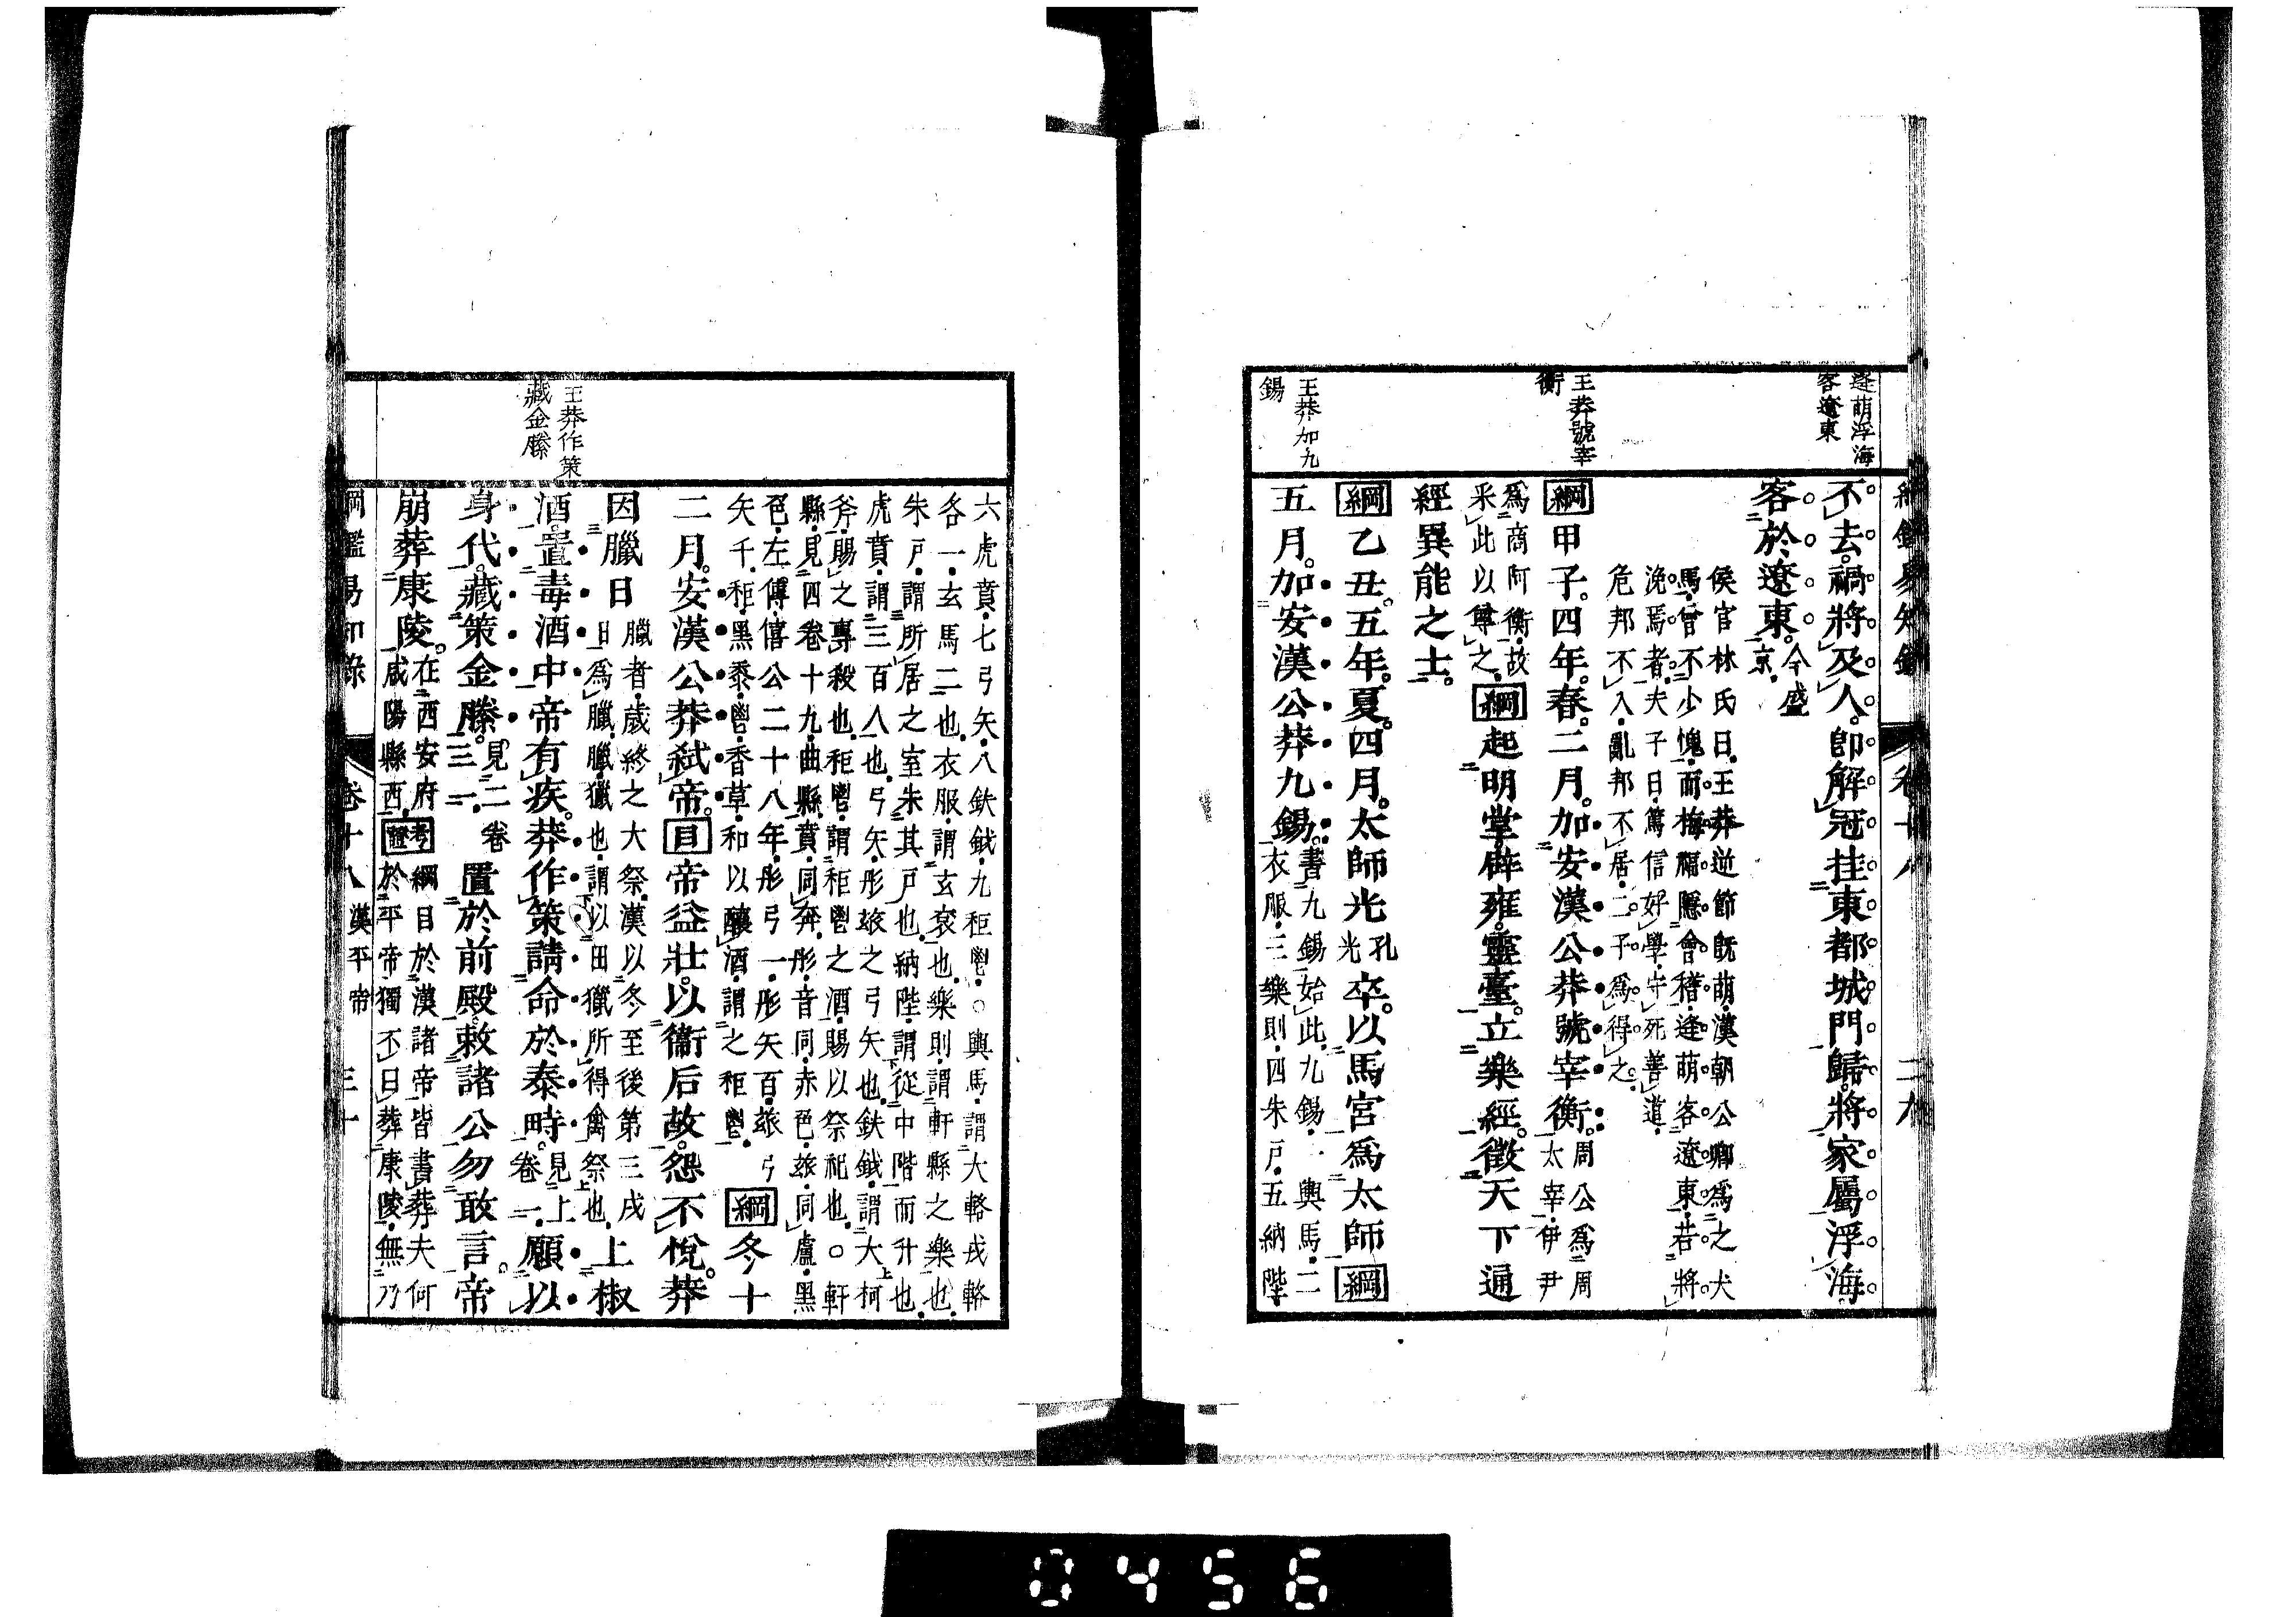 綱鑑易知錄 卷十八 二九
逢萌浮海
客遼東
王莽號宰
衡
王莽加九
錫
不去禍將及人。卽解冠挂東都城門歸將家屬浮海
客於遼東。今盛
京
侯官林氏曰王莽逆節旣萌漢朝公卿爲之犬
馬曾不少愧而梅福隱會稽逢萌客遼東若將
浼焉者夫子曰篤信好學守死善道
危邦不入亂邦不居二子爲得之
綱甲子。四年。春。二月。加安漢公莽號宰衡。周公爲周
太宰伊尹
爲商阿衡故
采此以尊之
綱起明堂辟雍靈臺。立樂經。徵天下通
經異能之士。
綱乙丑。五年。夏。四月。太師光孔
光卒。以馬宮爲太師綱
五月。加安漢公莽九錫。書九錫始此九錫一輿馬二
衣服三樂則四朱戶五納陛
六虎賁七弓矢八鈇鉞九秬鬯○輿馬謂大輅戎輅
各一玄馬二也衣服謂玄袞也樂則謂軒縣之樂也
朱戶謂所居之室朱其戶也納陛謂從中階而升也
虎賁謂三百人也弓矢彤玈之弓矢也鈇鉞謂大柯
斧賜之專殺也秬鬯謂秬鬯之酒賜以祭祀也○軒
縣見四卷十九曲縣賁同奔彤音同赤色玈同盧黑
色左傳僖公二十八年彤弓一彤矢百玈弓
矢千秬黑黍鬯香草和以釀酒謂之秬鬯
綱冬十
二月。安漢公莽弒帝。目帝益壯以衞后故怨不悅。莽
因臘日臘者歲終之大祭漢以冬至後第三戌
日爲臘臘獵也謂以田獵所得禽祭也上椒
酒置毒酒中帝有疾。莽作策請命於泰畤。見上
卷一願以
身代。藏策金縢。見二卷
三一置於前殿敕諸公勿敢言。帝
崩葬康陵。在西安府
咸陽縣西
考證綱目於漢諸帝皆書葬夫何
於平帝獨不曰葬康陵無乃
王莽作策
藏金縢
綱鑑易知錄 卷十八 漢平帝 三十
0456